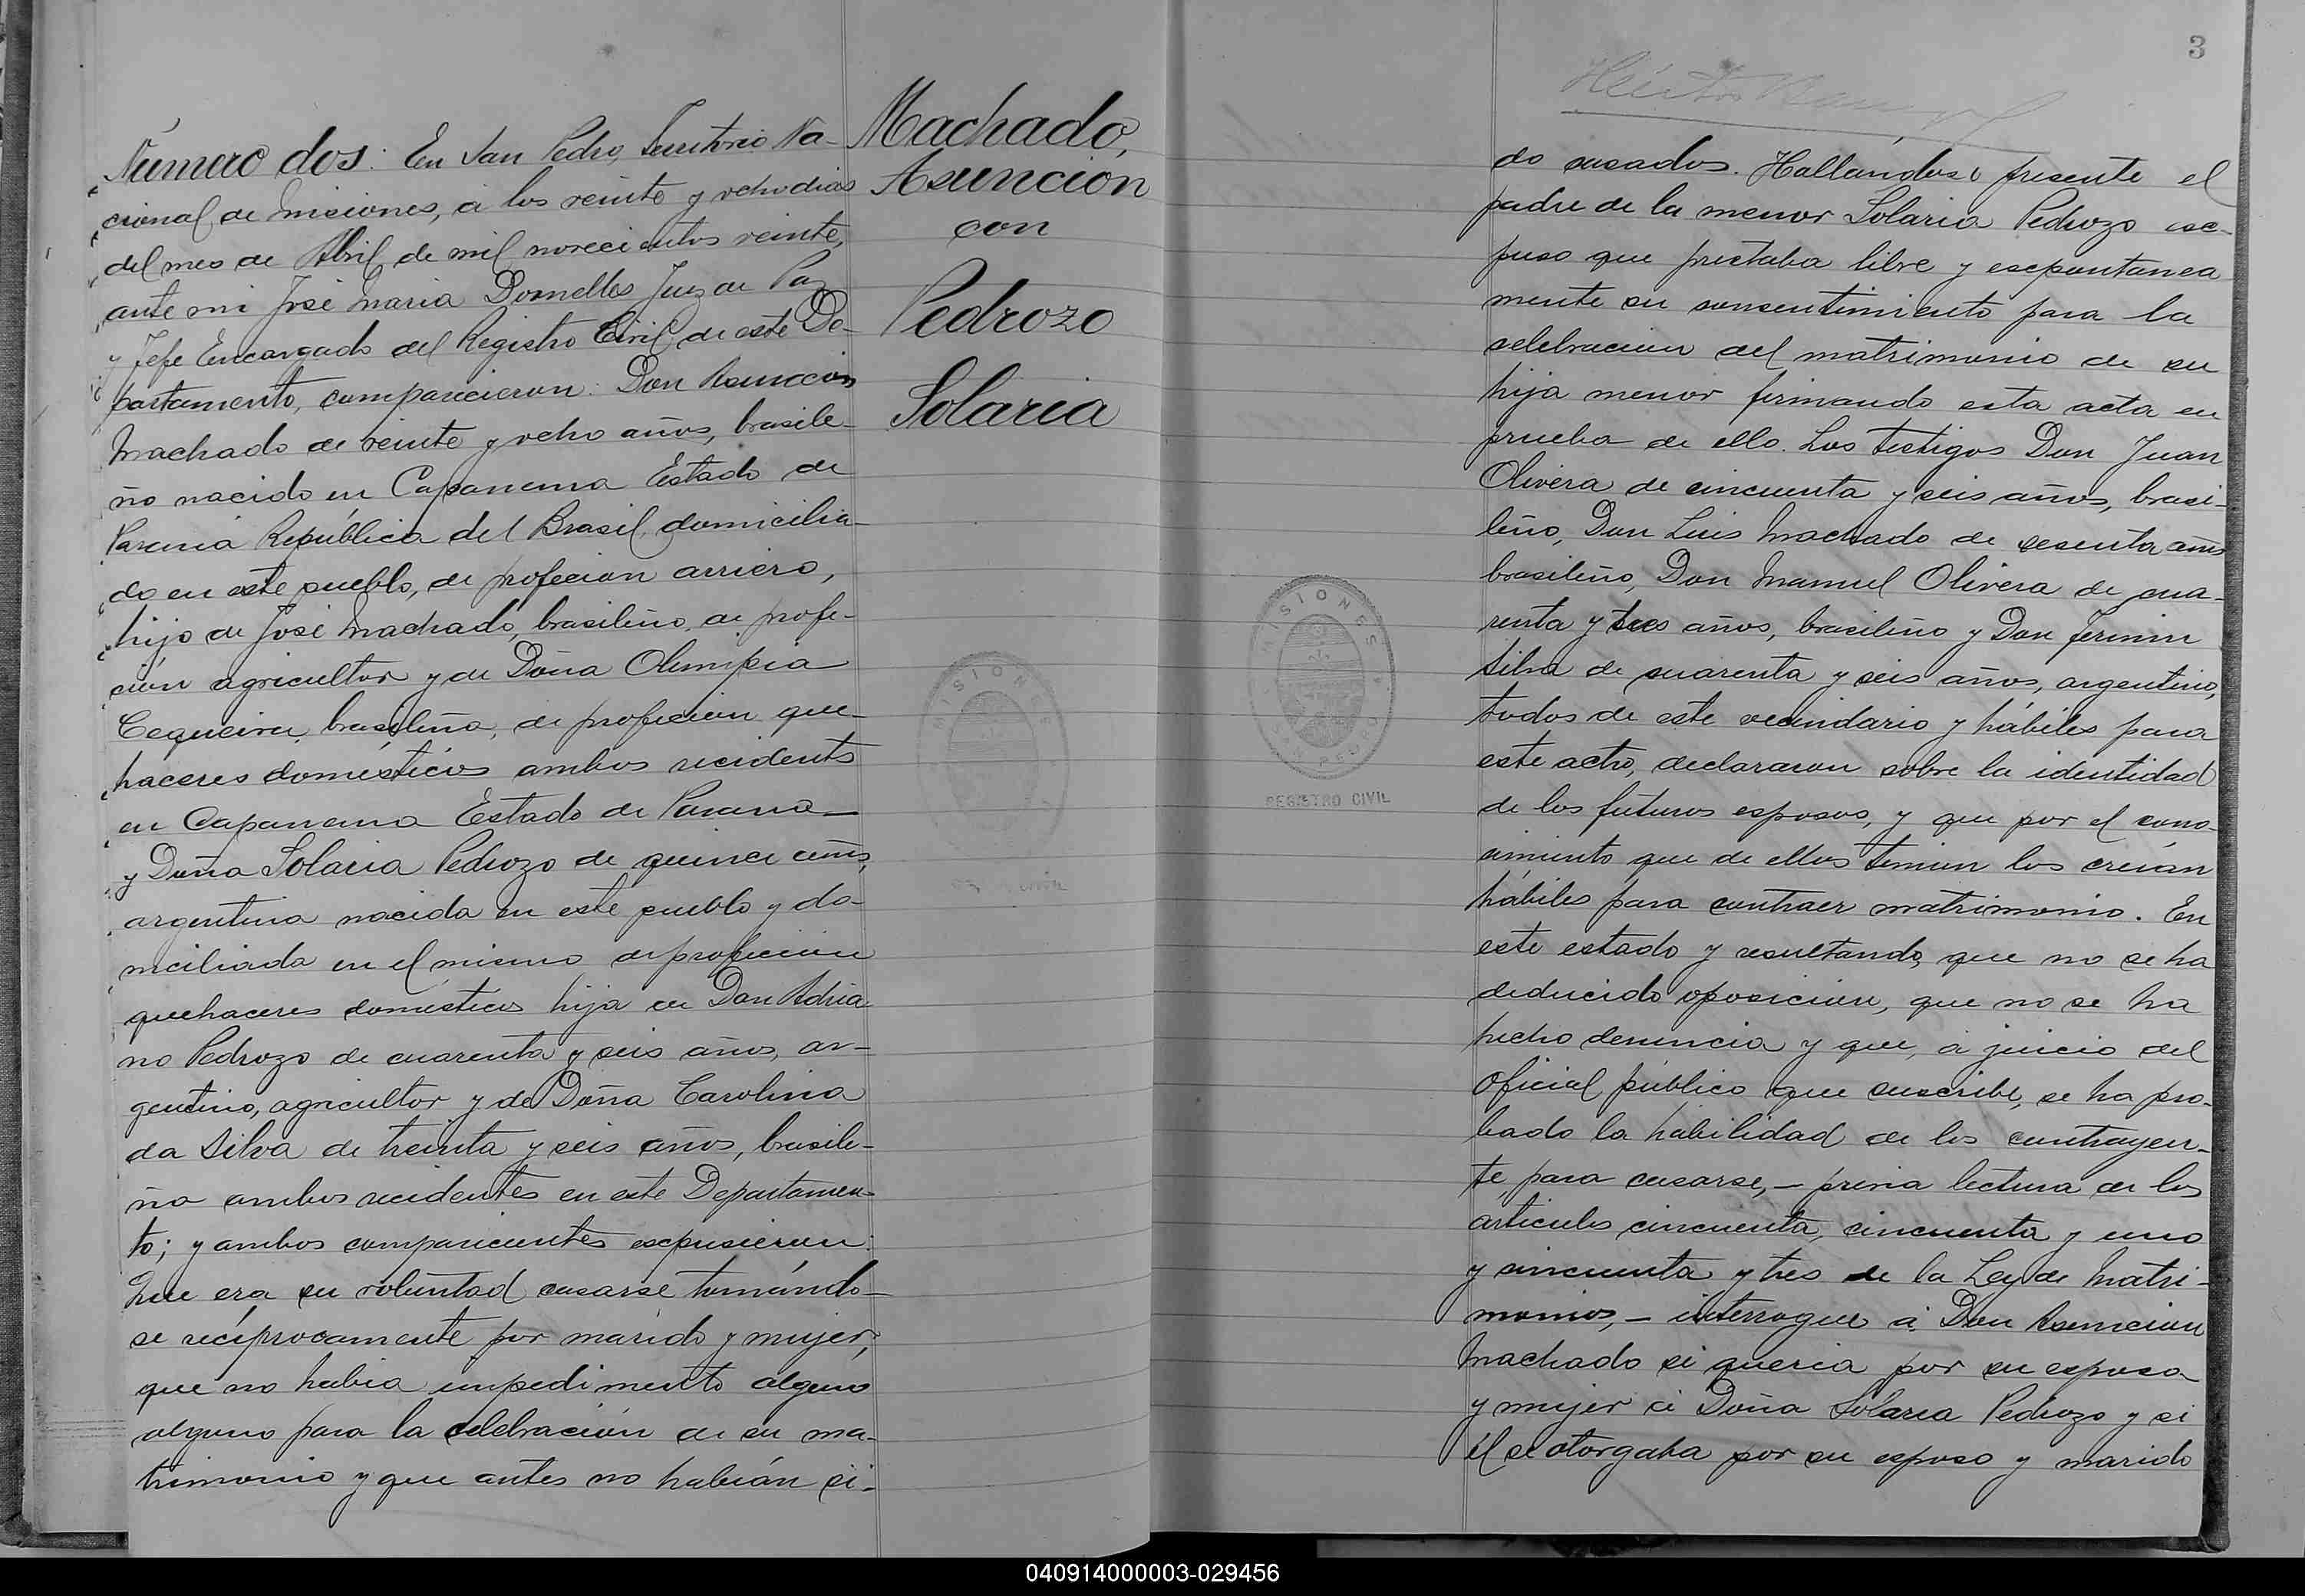 Número dos: En San Pedro, Territorio Na-
cional de Misiones, á los veinte y ocho dias
del mes de Abril de mil novecientos veinte,
ante mi José Maria Dornelles Juez de Paz
y Jefe Encargado del Registro Civil de este De-
partamento, comparecieron: Don Asuncion
Machado de veinte y ocho años, brasile-
ño nacido en Capanema Estado de
Paraná República del Brasil, domicilia-
do en este pueblo, de profecion arriero,
hijo de José Machado, brasileño, de profe-
ción agricultor y de Doña Olimpia
Cequeira, brasileña, de profecion que-
haceres domésticos ambos recidents
en Capanema Estado de Parana—
y Doña Solaria Pedrozo de quince años,
argentina nacida en este pueblo y do-
miciliada en el mismo de profecion
quehaceres domesticos hija de Don Adria-
no Pedrozo de cuarenta y seis años, ar-
gentino, agricultor y de Doña Carolina
da Silva de treinta y seis años, brasile-
ña ambos recidentes en este Departamen-
to; y ambos comparecientes expusieron:
Que era su voluntad casarse tomándo-
se recíprocamente por marido y mujer,
que no habia impedimento alguno
alguno para la celebración de su ma-
trimonio y que antes no habián si-
Machado,
Asuncion
con
Pedrozo
Solaria
MISIONES
3
Héctor
do casados. Hallandose presente el
padre de la menor Solaria Pedrozo ex-
puso que prestaba libre y expontanea
mente su consentimiento para la
celebracion del matrimonio de su
hija menor firmando esta acta en
prueba de ello. Los testigos Don Juan
Olivera de cincuenta y seis años, brasi-
leño, Don Luis Machado de sesenta años
brasileño, Don Manuel Olivera de cua-
renta y tres años, brasileño y Don Fermin
Silva de cuarenta y seis años, argentino,
todos de este vecindario y hábiles para
este acto, declararon sobre la identidad
de los futuros esposos, y que por el cono-
cimiento que de ellos tenian los creian
hábiles para contraer matrimonio. En
este estado y resultando, que no se ha
deducido oposicion, que no se ha
hecho denuncia y que, á juicio del
Oficial público que suscribe, se ha pro-
bado la habilidad de los contrayen-
te para casarse,— previa lectura de los
articulos cincuenta, cincuenta y uno
y cincuenta y tres de la Ley de Matri-
monios,— interrogue á Don Asuncion
Machado si queria por su esposa
y mujer á Doña Solaria Pedrozo y si
él se otorgaba por su esposo y marido
MISIONES
SAN PEDRO
REGISTRO CIVIL
040914000003-029456